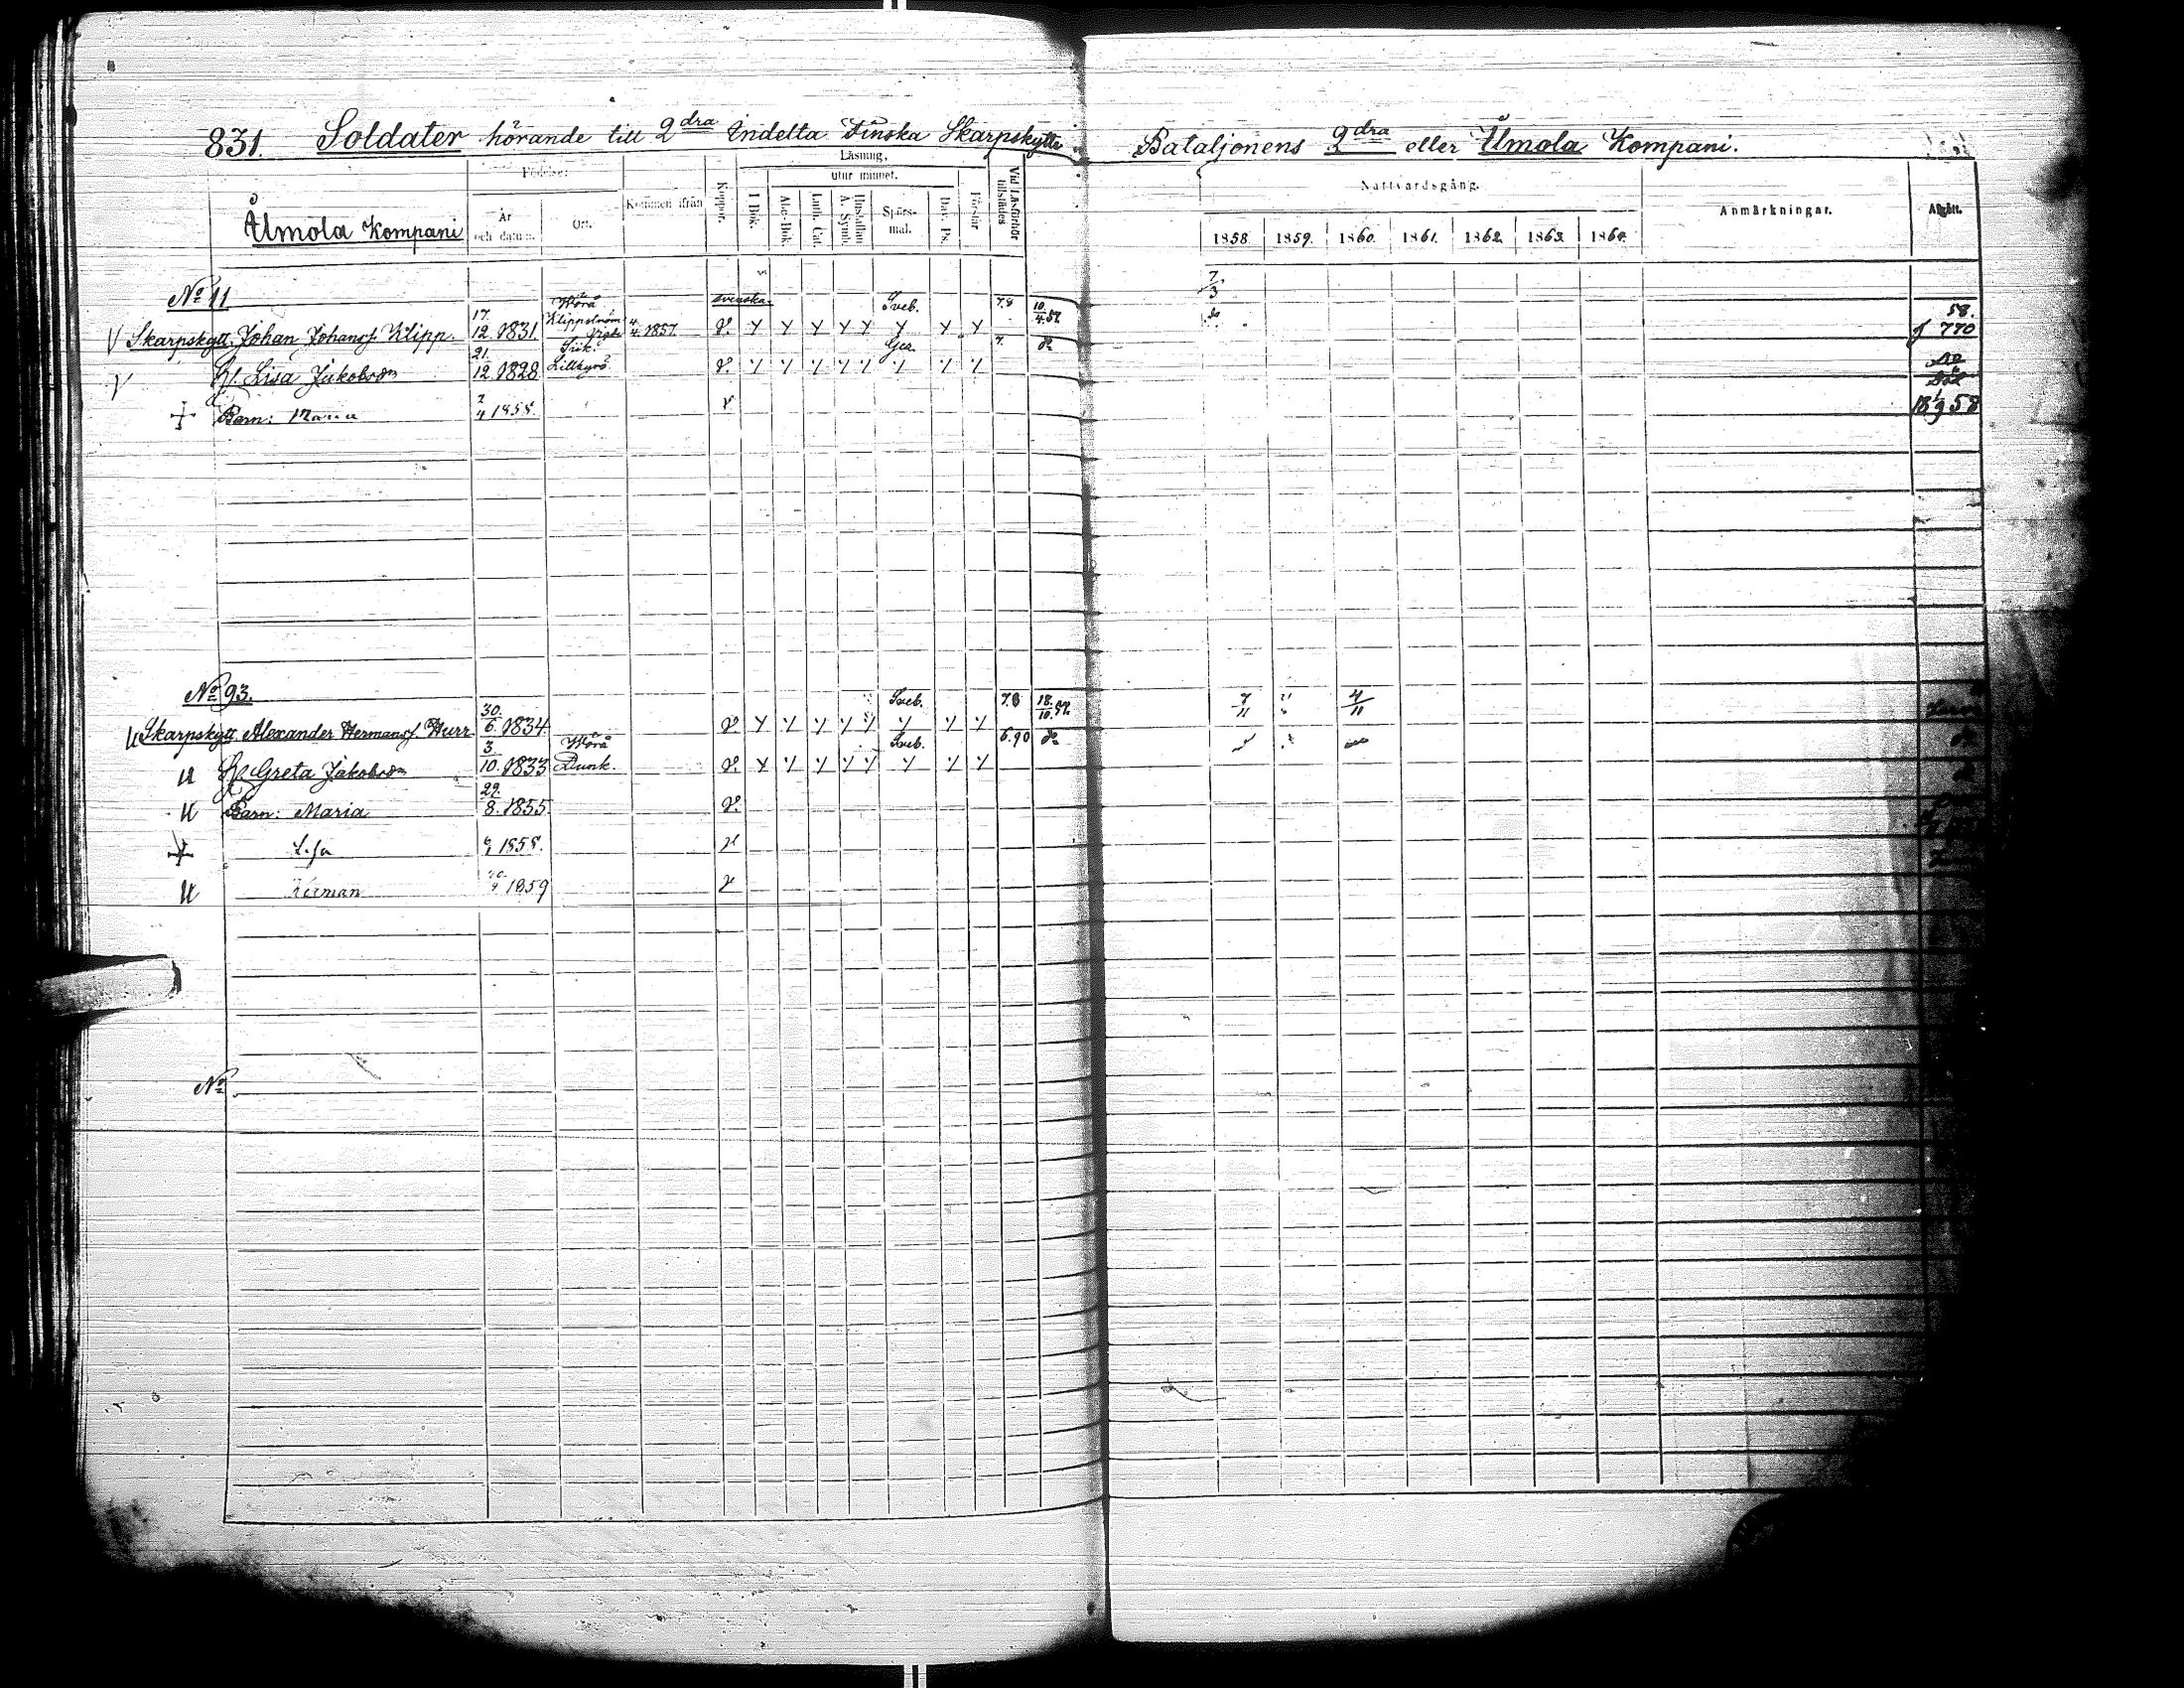 831. Soldater hörande till 2dra Indelta Finska Skarpskytte Bataljonens 2dra eller Ålmola Kompani.
Ålmola Kompani
Födelse:
År och datum.
Ort.
Kommen ifrån
Koppor.
Läsning,
utur minnet.
I Bok.
Abc-Bok
Luth. Cat.
Hustaflan A. Symb.
Spörsmal.
Dav. Ps.
Förstår
Vid Läsförhör tillstädes
Nattvardsgång.
1858. 1859. 1860. 1861. 1862. 1863. 1864.
Anmärkningar.
Afgått.
No 11
Skarpskytt. Johan Johanss. Klipp. 17/12 1831. Wörå Klippström 4/4 1857. svenska Sveb. 7.8 10/4.57 7/3 58. 770
H. Lisa Jakobsdr 21/12 1828 Lillkyrö 7. do
Barn: Maria 2/4 1858. 18 58
No 93.
Skarpskytt. Alexander Hermanss. Hurr 30./6. 1834 Sveb. 7.8 18./10. 57. 7/11 4/11
H. Greta Jakobsdr 3/10. 1833 Wörå Dunk. Sveb. 6.90 do
Barn: Maria 29./8. 1855.
Lisa 1858.
Herman 1859
No